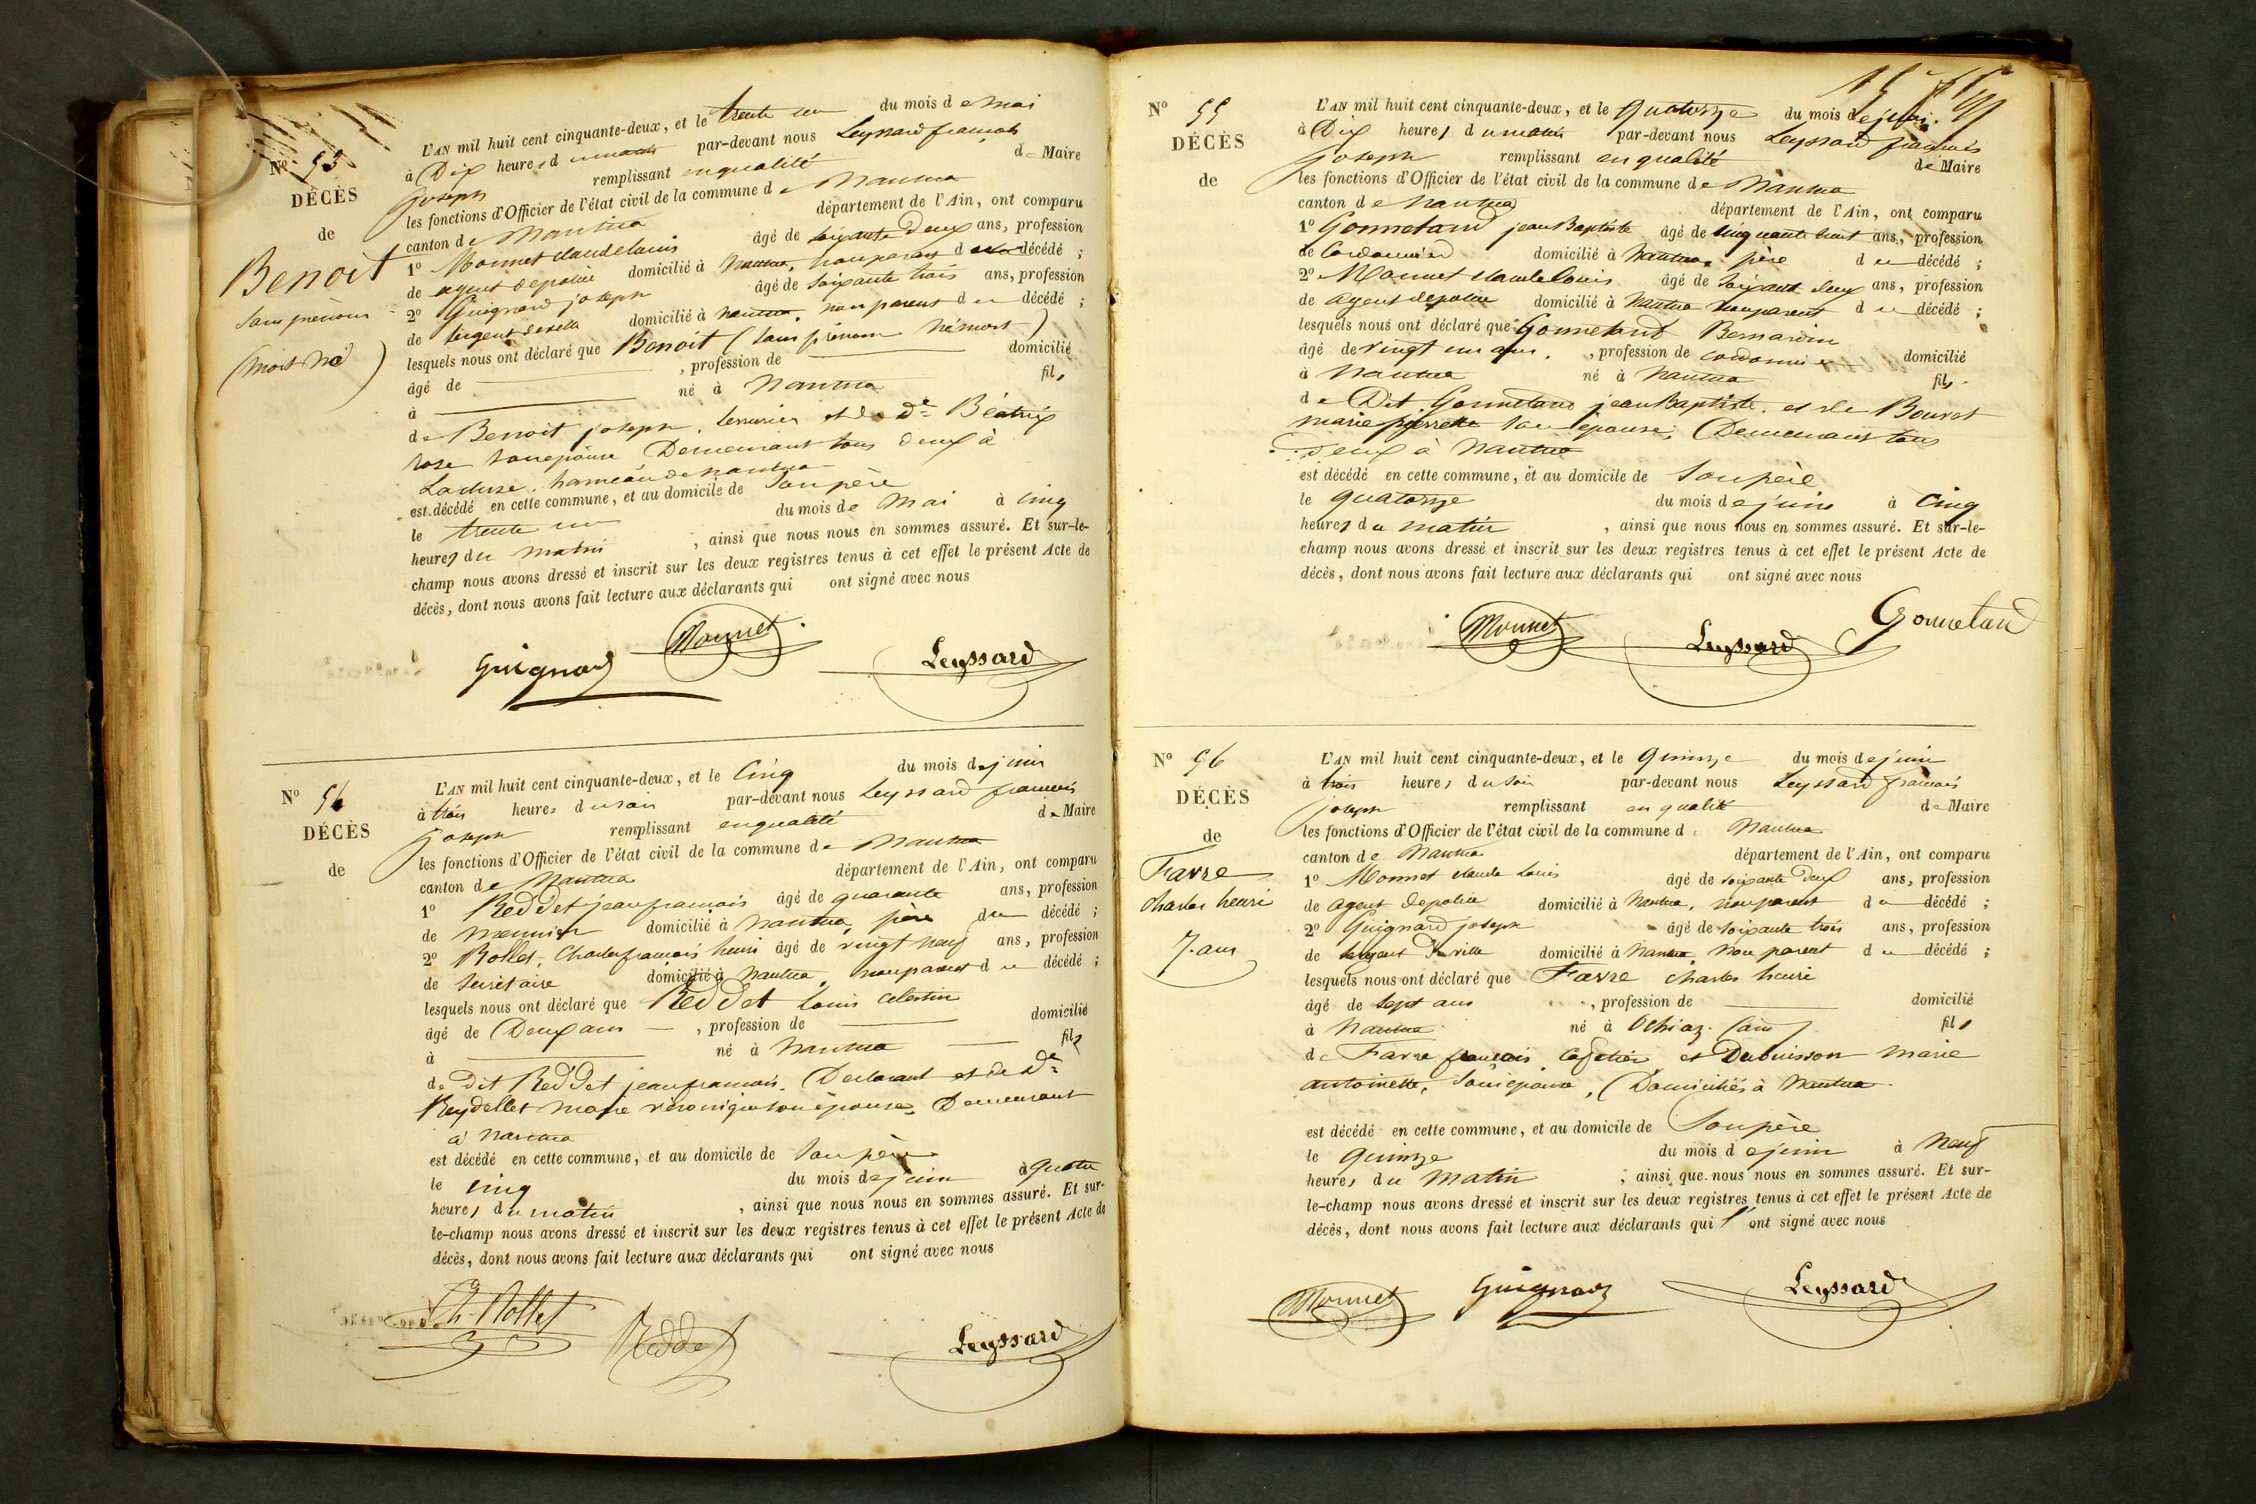 Nº 53
DÉCÈS
de
Benoit
sans prénoms
(mort né)
L'AN mil huit cent cinquante-deux, et le trente un du mois de Mai
à Dix heures du matin par-devant nous Leyssard françois
joseph remplissant en qualité de Maire
les fonctions d'Officier de l'état civil de la commune de Nantua
canton de Nantua département de l'Ain, ont comparu
1º Monnet claude louis âgé de soixante Deux ans, profession
de agent de police domicilié à Nantua, non parent d décédé ;
2º Guignard joseph âgé de soixante trois ans, profession
de sergent de ville domicilié à nantua, non parent du décédé ;
lesquels nous ont déclaré que Benoit (sans prénom né mort)
âgé de , profession de domicilié
à né à Nantua fils
de Benoit joseph, serrurier et de De Béatrix
rose son épouse Demeurant tous deux à
Lacluse, hameau de nantua
est décédé en cette commune, et au domicile de son père
le trente un du mois de Mai à cinq
heures du matin , ainsi que nous nous en sommes assuré. Et sur-le-
champ nous avons dressé et inscrit sur les deux registres tenus à cet effet le présent Acte de
décès, dont nous avons fait lecture aux déclarants qui ont signé avec nous
Guignard Monnet Leyssard
Nº 54
DÉCÈS
de
L'AN mil huit cent cinquante-deux, et le Cinq du mois de juin
à trois heures du soir par-devant nous Leyssard françois
joseph remplissant en qualité de Maire
les fonctions d'Officier de l'état civil de la commune de Nantua
canton de Nantua département de l'Ain, ont comparu
1º Reddet jean françois âgé de quarante ans, profession
de meunier domicilié à Nantua, père du décédé ;
2º Rollet, Charles françois henri âgé de vingt neuf ans, profession
de secrétaire domicilié à Nantua, non parent du décédé ;
lesquels nous ont déclaré que Reddet Louis Celestin
âgé de Deux ans , profession de domicilié
à né à Nantua fils
de Dit Reddet jean françois, Déclarant et de De
Reydellet marie véronique son épouse, Demeurant
à nantua
est décédé en cette commune, et au domicile de son père
le cinq du mois de juin à quatre
heures du matin , ainsi que nous nous en sommes assuré. Et sur-
le-champ nous avons dressé et inscrit sur les deux registres tenus à cet effet le présent Acte de
décès, dont nous avons fait lecture aux déclarants qui ont signé avec nous
Ch. Rollet Reddet Leyssard
Nº 55
DÉCÈS
de
L'AN mil huit cent cinquante-deux, et le Quatorze du mois de juin
à Dix heures du matin par-devant nous Leyssard françois
joseph remplissant en qualité de Maire
les fonctions d'Officier de l'état civil de la commune de Nantua
canton de Nantua département de l'Ain, ont comparu
1º Gonnetand jean Baptiste âgé de cinquante huit ans, profession
de Cordonnier domicilié à Nantua, père du décédé ;
2º Monnet claude louis âgé de soixante deux ans, profession
de agent de police domicilié à Nantua non parent du décédé ;
lesquels nous ont déclaré que Gonnetand Bernardin
âgé de vingt un ans , profession de cordonnier domicilié
à Nantua né à Nantua fils
de Dit Gonnetand jean Baptiste et de Bouvet
marie pierrette son épouse, Demeurant tous
deux à Nantua
est décédé en cette commune, et au domicile de son père
le quatorze du mois de juin à Cinq
heures du matin , ainsi que nous nous en sommes assuré. Et sur-le-
champ nous avons dressé et inscrit sur les deux registres tenus à cet effet le présent Acte de
décès, dont nous avons fait lecture aux déclarants qui ont signé avec nous
Monnet Leyssard Gonnetand
Nº 56
DÉCÈS
de
Favre
charles henri
7. ans
L'AN mil huit cent cinquante-deux, et le Quinze du mois de juin
à trois heures du soir par-devant nous Leyssard françois
joseph remplissant en qualité de Maire
les fonctions d'Officier de l'état civil de la commune d Nantua
canton de Nantua département de l'Ain, ont comparu
1º Monnet claude Louis âgé de soixante deux ans, profession
de agent de police domicilié à Nantua, non parent du décédé ;
2º Guignard joseph âgé de soixante trois ans, profession
de sergent de ville domicilié à Nantua non parent du décédé ;
lesquels nous ont déclaré que Favre charles henri
âgé de sept ans , profession de domicilié
à Nantua né à Ochiaz (ain) fils
de Favre françois, Cafetier et Dubuisson marie
antoinette, son épouse, Domiciliés à Nantua
est décédé en cette commune, et au domicile de son père
le quinze du mois de juin à neuf
heures du matin ; ainsi que nous nous en sommes assuré. Et sur-
le-champ nous avons dressé et inscrit sur les deux registres tenus à cet effet le présent Acte de
décès, dont nous avons fait lecture aux déclarants qui l'ont signé avec nous
Monnet Guignard Leyssard